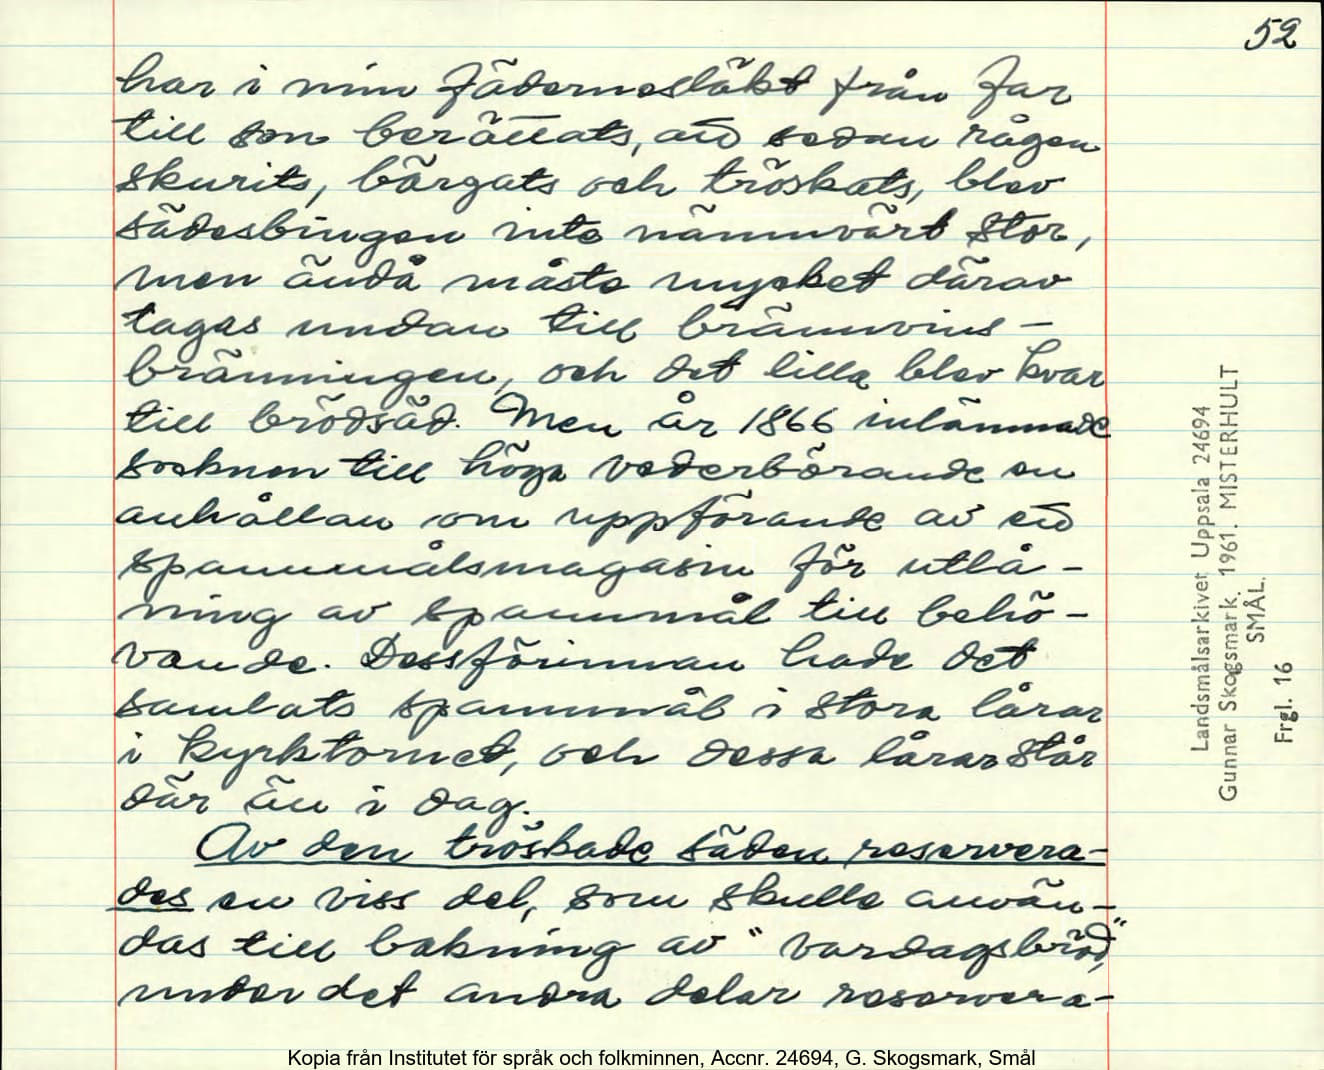 52
har i min fädernesläkt från far
till son berättats, att sedan rågen
skurits, bärgats och tröskats, blev
sädesbingen inte nämnvärt stor,
men ändå måste mycket därav
tagas undan till brännvins-
bränningen, och det lilla blev kvar
till brödsäd. Men år 1866 inlämnade
socknen till höga vederbörande en
anhållan om uppförande av ett
spannmålsmagasin för utlå-
ning av spannmål till behö-
vande. Dessförinnan hade det
samlats spannmål i stora lårar
i kyrktornet, och dessa lårar står
där än i dag.
Av den tröskade säden reservera-
des en viss del, som skulle använ-
das till bakning av "vardagsbröd",
under det andra delar reservera-
Landsmålsarkivet Uppsala 24694
Gunnar Skogsmark. 1961. MISTERHULT
SMÅL.
Frgl. 16
Kopia från Institutet för språk och folkminnen, Accnr. 24694, G. Skogsmark, Smål